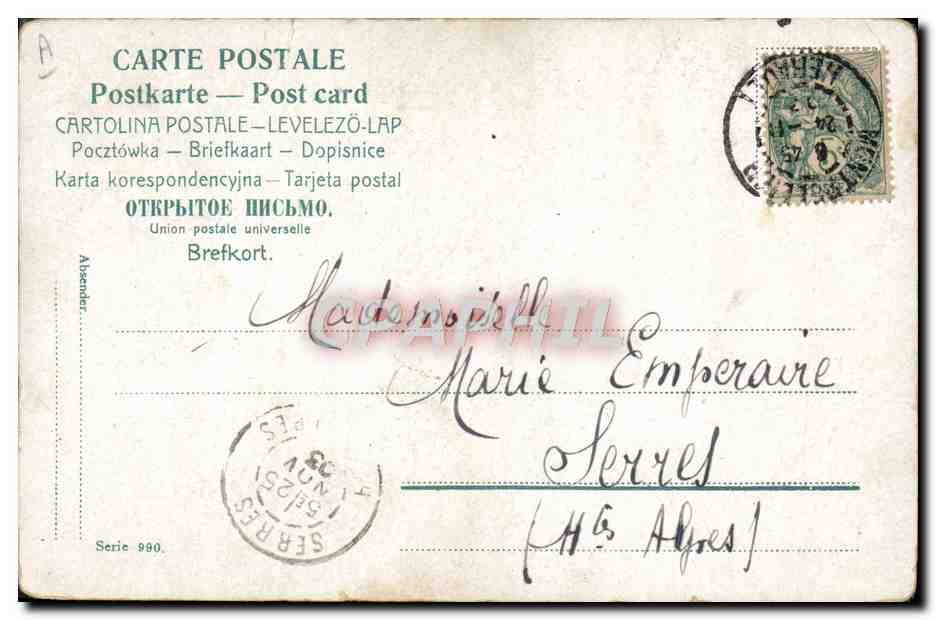 A
CARTE POSTALE
Postkarte — Post card
CARTOLINA POSTALE—LEVELEZÖ-LAP
Pocztówka — Briefkaart — Dopisnice
Karta korespondencyjna — Tarjeta postal
ОТКРЫТОЕ ПИСЬМО.
Union postale universelle
Brefkort.
Absender.
Mademoiselle
Marie Emperaire
Serres
(Htes Alpes)
CPAPHIL
SERRES
25
NOV
03
Serie 990.
MONTPELLIER
HERAULT
24
5